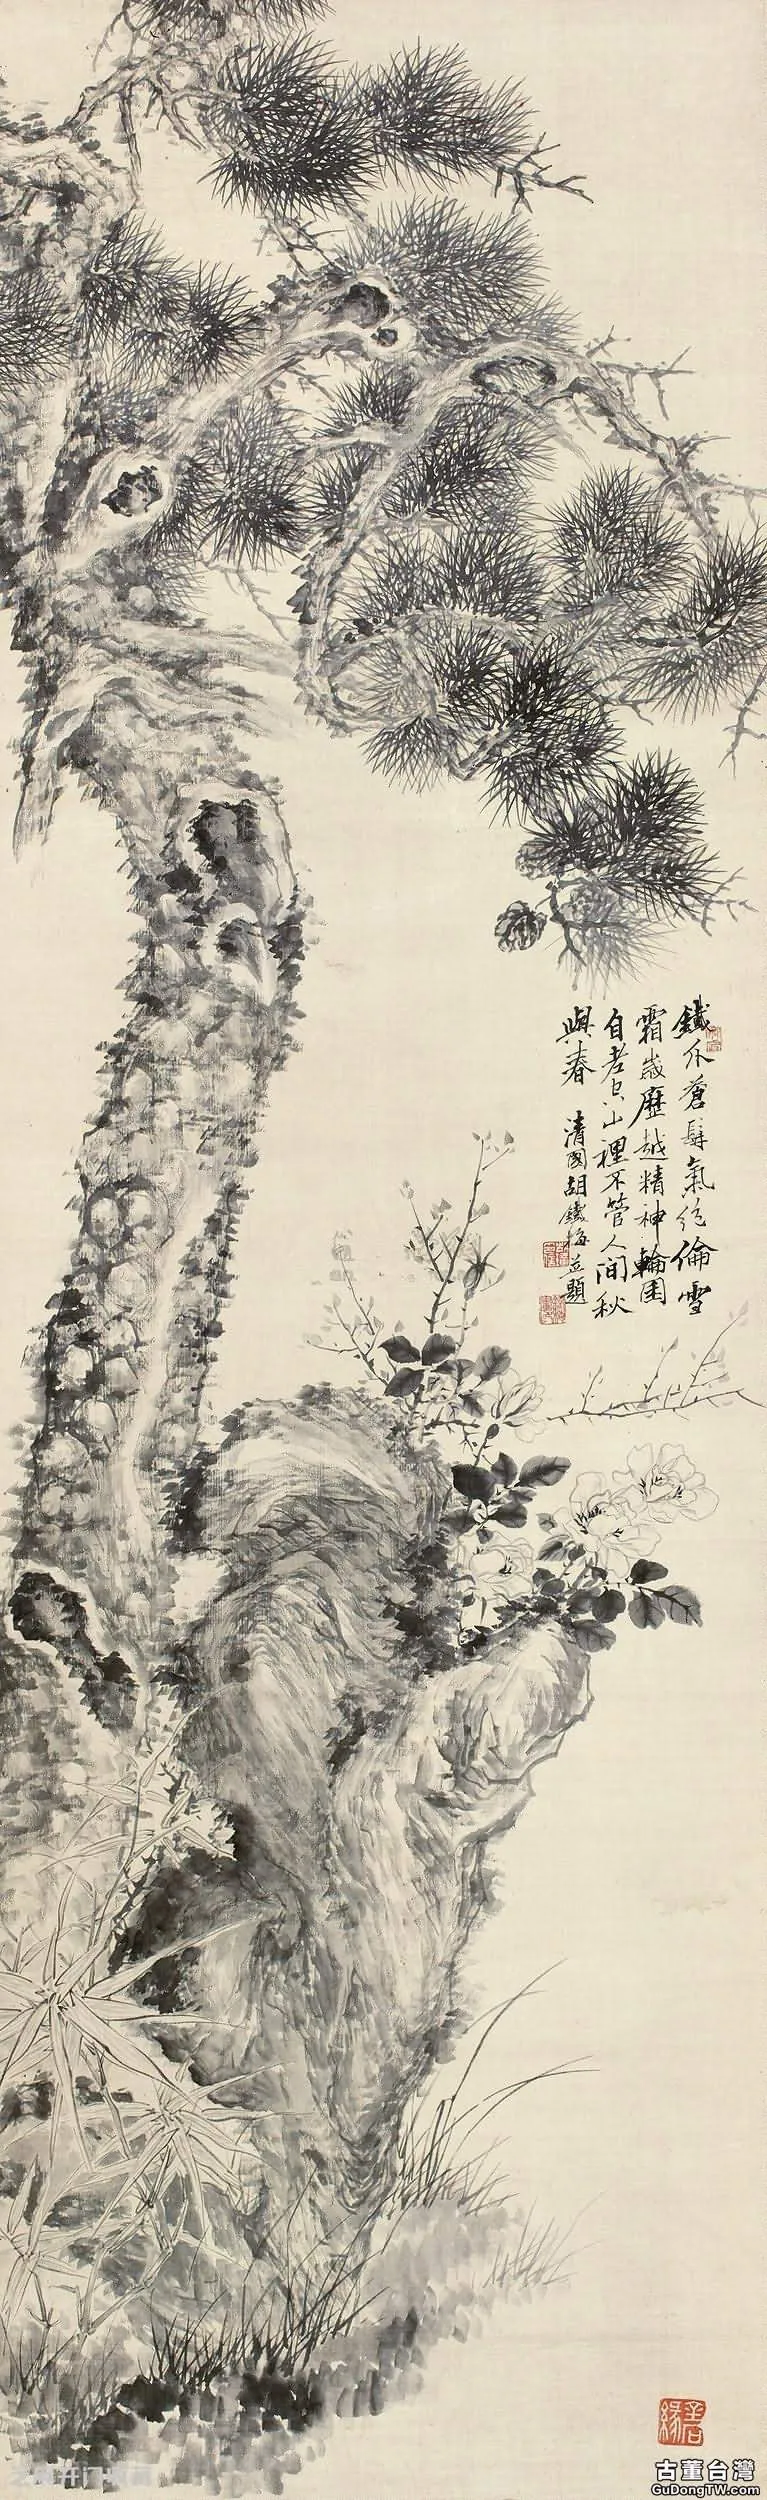 鐵爪蒼髯氣絕倫雪
霜歲歷越精神輪囷
自老空山裡不管人間秋
與春
清國胡鐵梅並題
古董台灣
GuDongTW.com